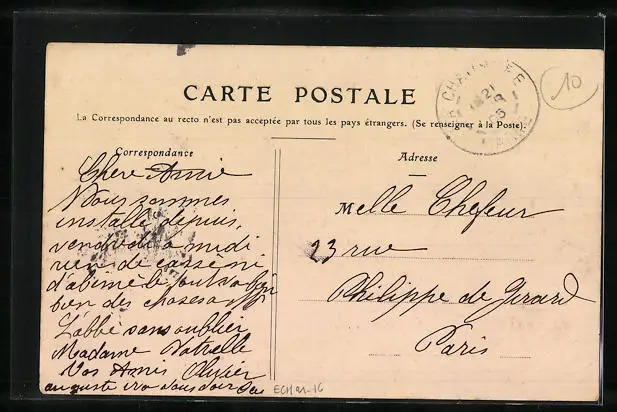 CARTE POSTALE
La Correspondance au recto n'est pas acceptée par tous les pays étrangers. (Se renseigner à la Poste).
10
21
Correspondance
Adresse
Chère Amie
Nous sommes
installé depuis
vendredi a midi
rien de cassé ni
d'abime
bien des choses a
L'abbé sans oublier
Madame
Vos Amis Olivier
auguste ira vous voir
Melle Chefeur
23 rue
Philippe de Gerard
Paris